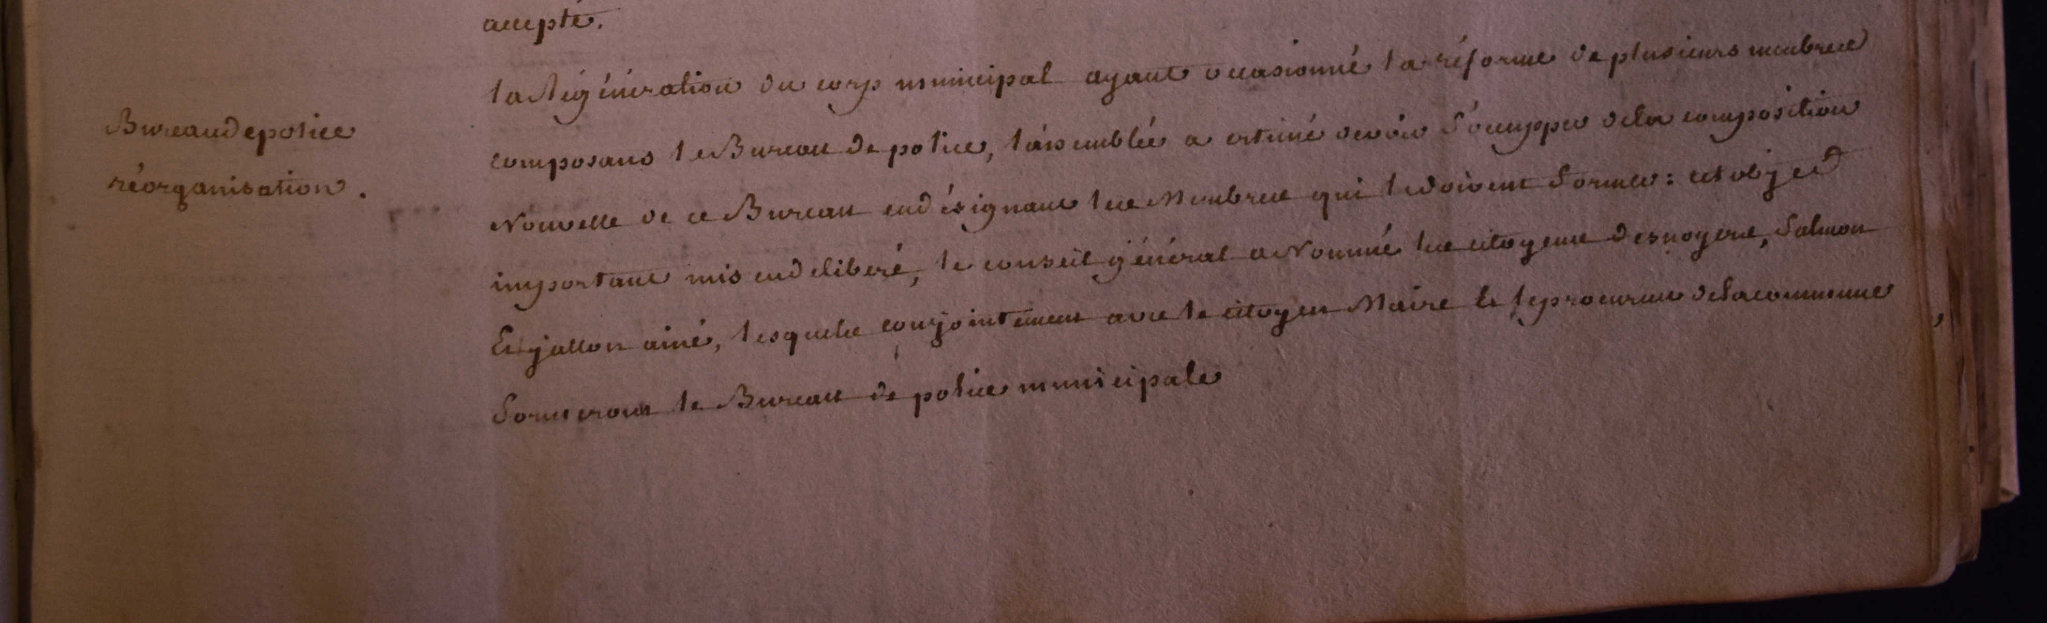 accepté.
Bureau de police
réorganisation.
la Régénération du corp municipal ayant occasionné la réforme de plusieurs membres
composans le Bureau de police, l'assemblée a estimé devoir s'occupper de la composition
Nouvelle de ce Bureau en désignant les Membres qui le doivent former : cet objet
important mis en déliberé, le conseil général a Nommé les citoyens desnoyers, Salmon
Et jallon ainé, lesquels conjointement avec le citoyen Maire et le procureur de la commune
formeront le Bureau de police municipale